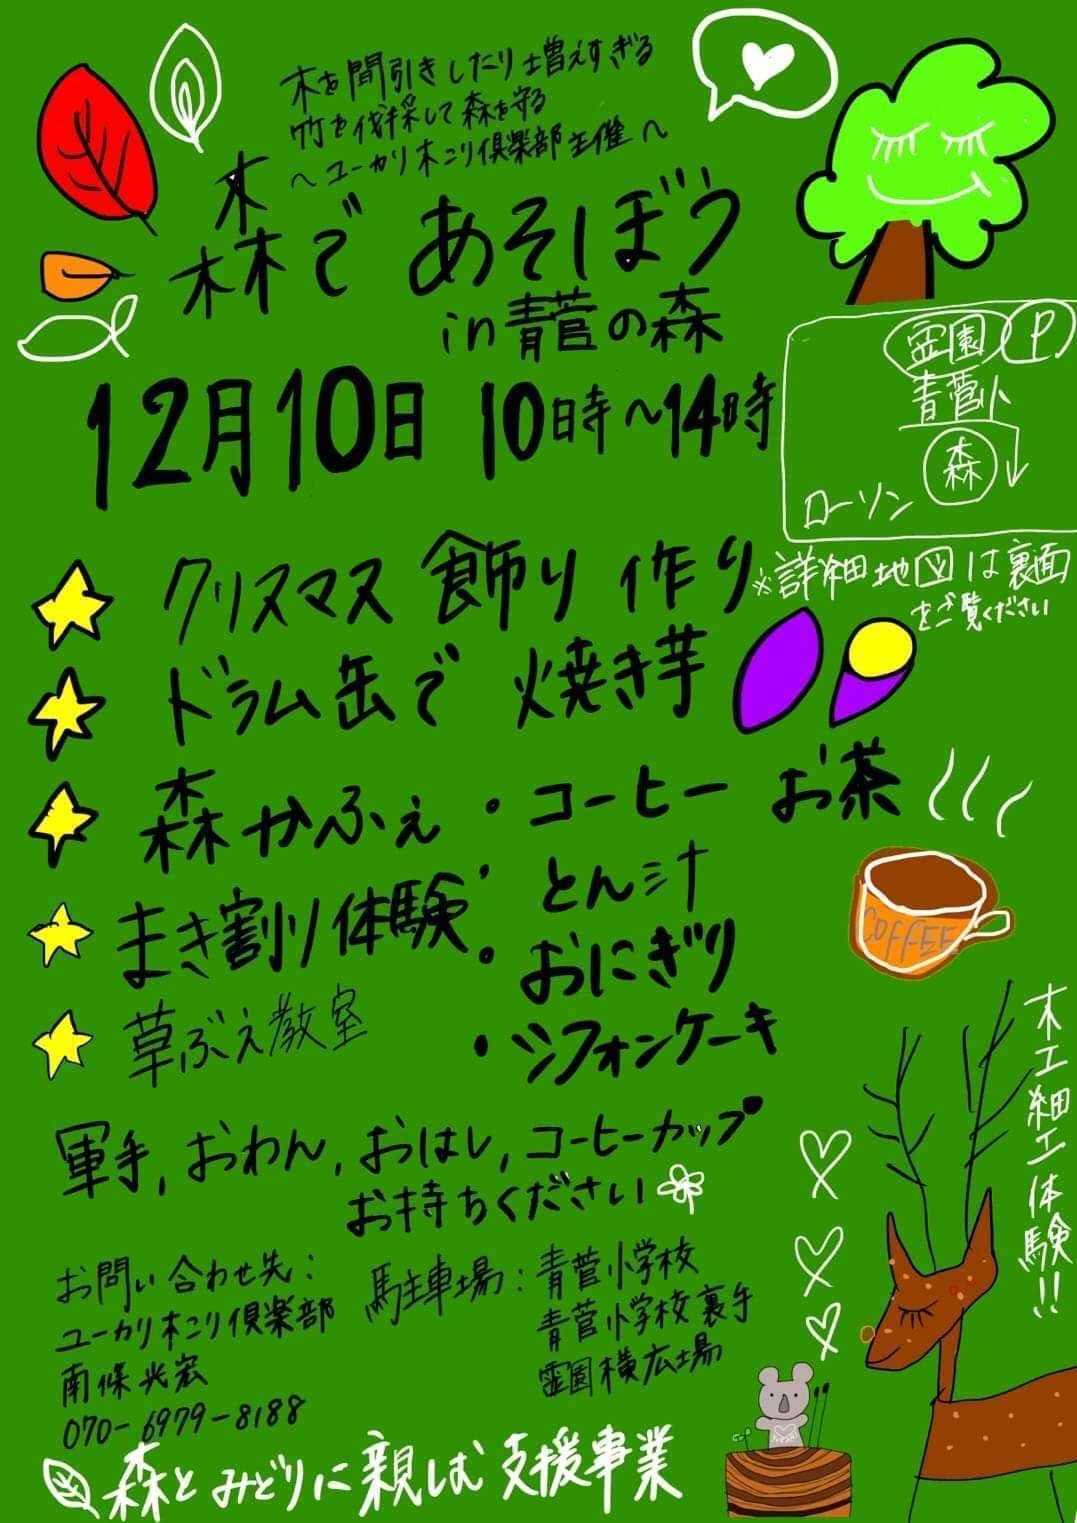 木を間引きしたり増えすぎる
竹を伐採して森を守る
～ユーカリ木こり倶楽部主催～
森であそぼう
in青菅の森
12月10日 10時～14時
霊園 P
青菅小
森
ローソン
※詳細地図は裏面
をご覧ください
クリスマス飾り作り
ドラム缶で焼き芋
森かふぇ・コーヒー お茶
・とん汁
・おにぎり
・シフォンケーキ
まき割り体験
草ぶえ教室
COFFEE
木工細工体験!!
軍手,おわん,おはし,コーヒーカップ
お持ちください
お問い合わせ先:
ユーカリ木こり倶楽部
南條 宏
070-6979-8188
駐車場:青菅小学校
青菅小学校裏手
霊園横広場
森とみどりに親しむ支援事業